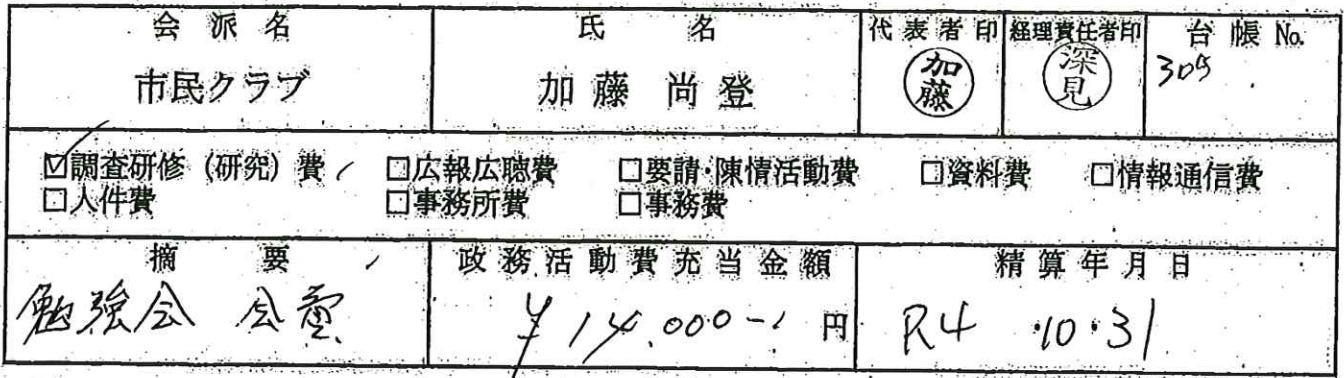 会派名 氏名 代表者印 経理責任者印 台帳No.
市民クラブ 加藤尚登 加藤 深見 305
☑調査研修(研究)費 □広報広聴費 □要請・陳情活動費 □資料費 □情報通信費
□人件費 □事務所費 □事務費
摘要 政務活動費充当金額 精算年月日
勉強会 会費 ¥14,000- 円 R4・10・31